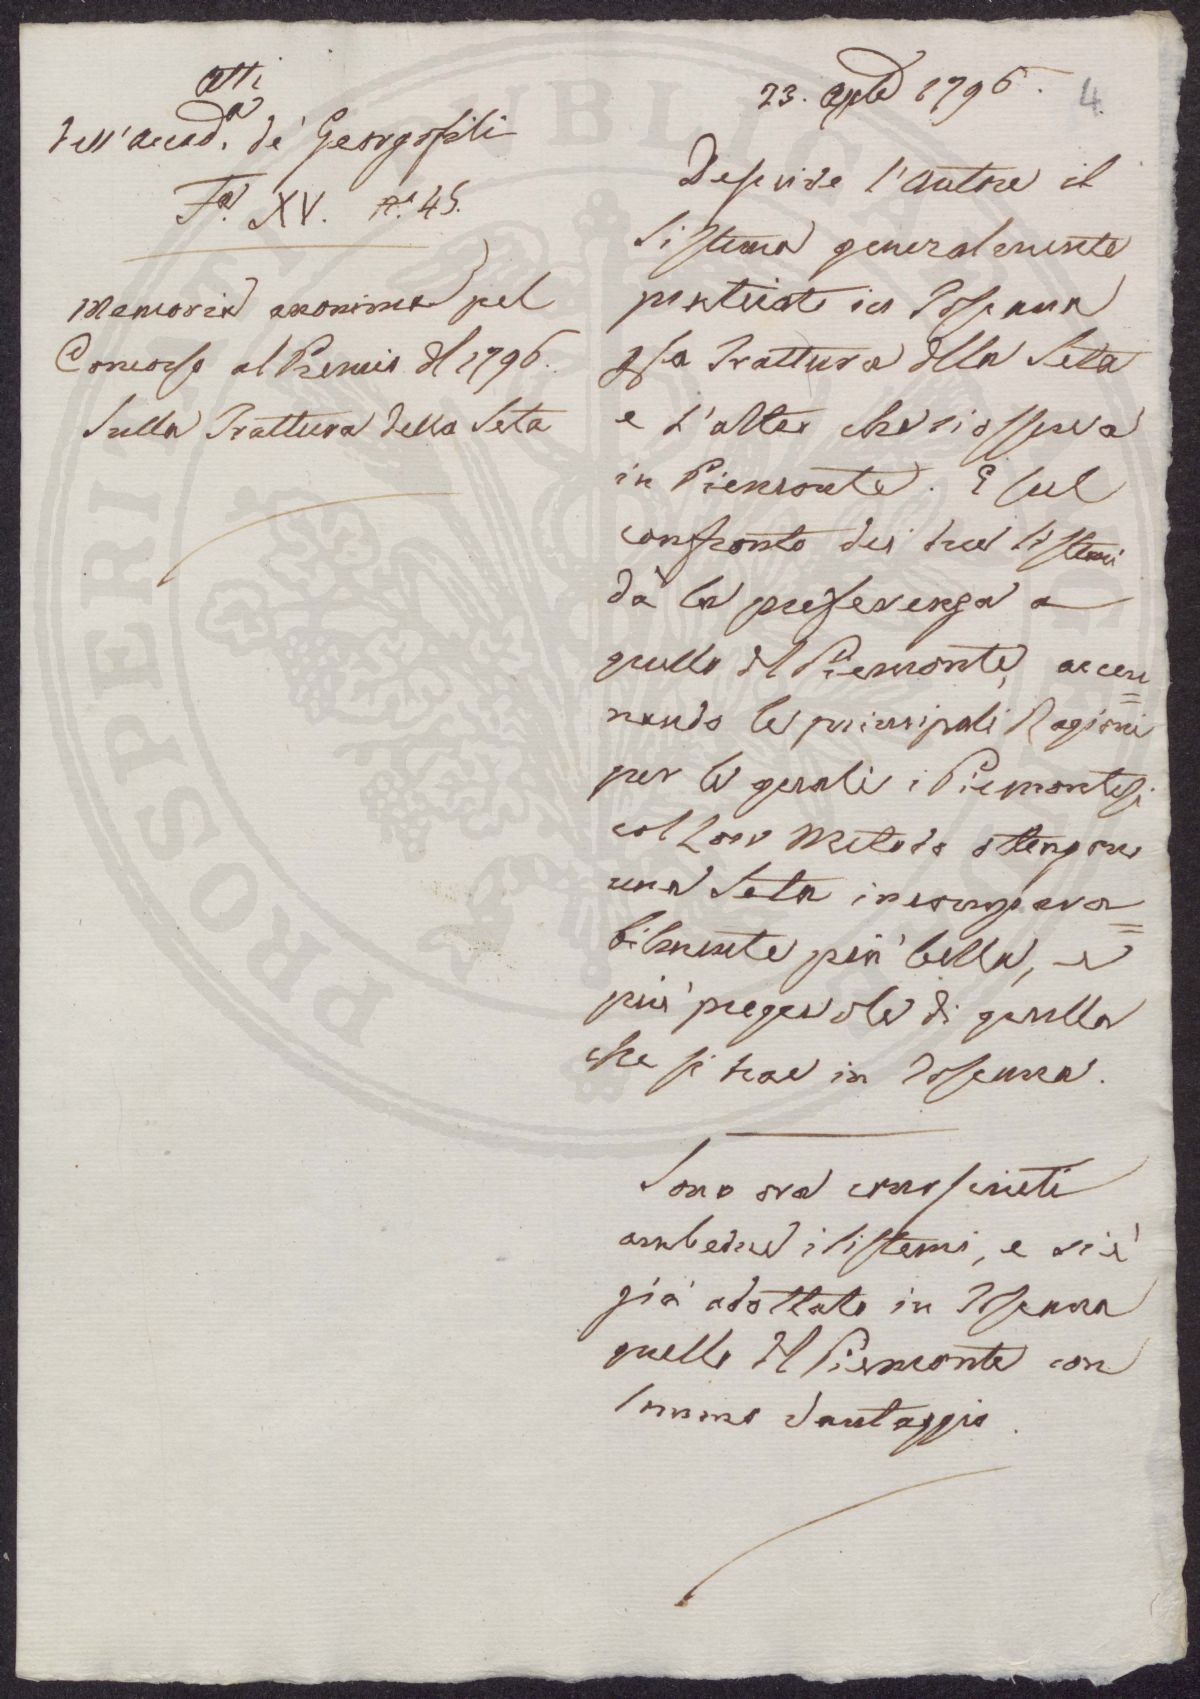 Atti
dell'Accad.a de' Georgofili
Fa. XV. N.o 45.
Memoria anonima pel
Concorso al Premio del 1796.
Sulla Trattura della Seta
23. 1796. 4
Descrive l'Autore il
Sistema generalmente
praticato in Toscana
p la Trattura della Seta
e l'altro che si osserva
in Piemonte. E sul
confronto dei due Sistemi
dà la preferenza a
quello del Piemonte, accen=
nando le principali Ragioni
per le quali i Piemontesi
col loro Metodo ottengono
una Seta incompara=
bilmente più bella, e
più pregevole di quella
che si trae in Toscana.
Sono ora conosciuti
ambedue i Sistemi, e si è
già adottato in Toscana
quello del Piemonte con
sommo vantaggio.
PROSPERITE
UBLICA